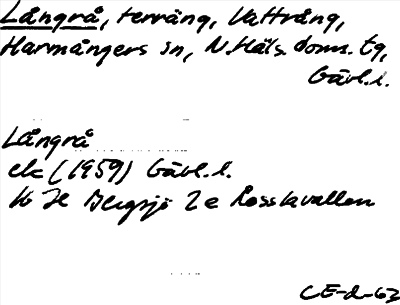 Långrå, terräng, Vattrång,
Harmångers sn, N. Häls. doms. tg,
Gävl. l.
Långrå
ek (1959) Gävl. l.
16 H Bergsjö 2 e Rossavallen
CE-d-63